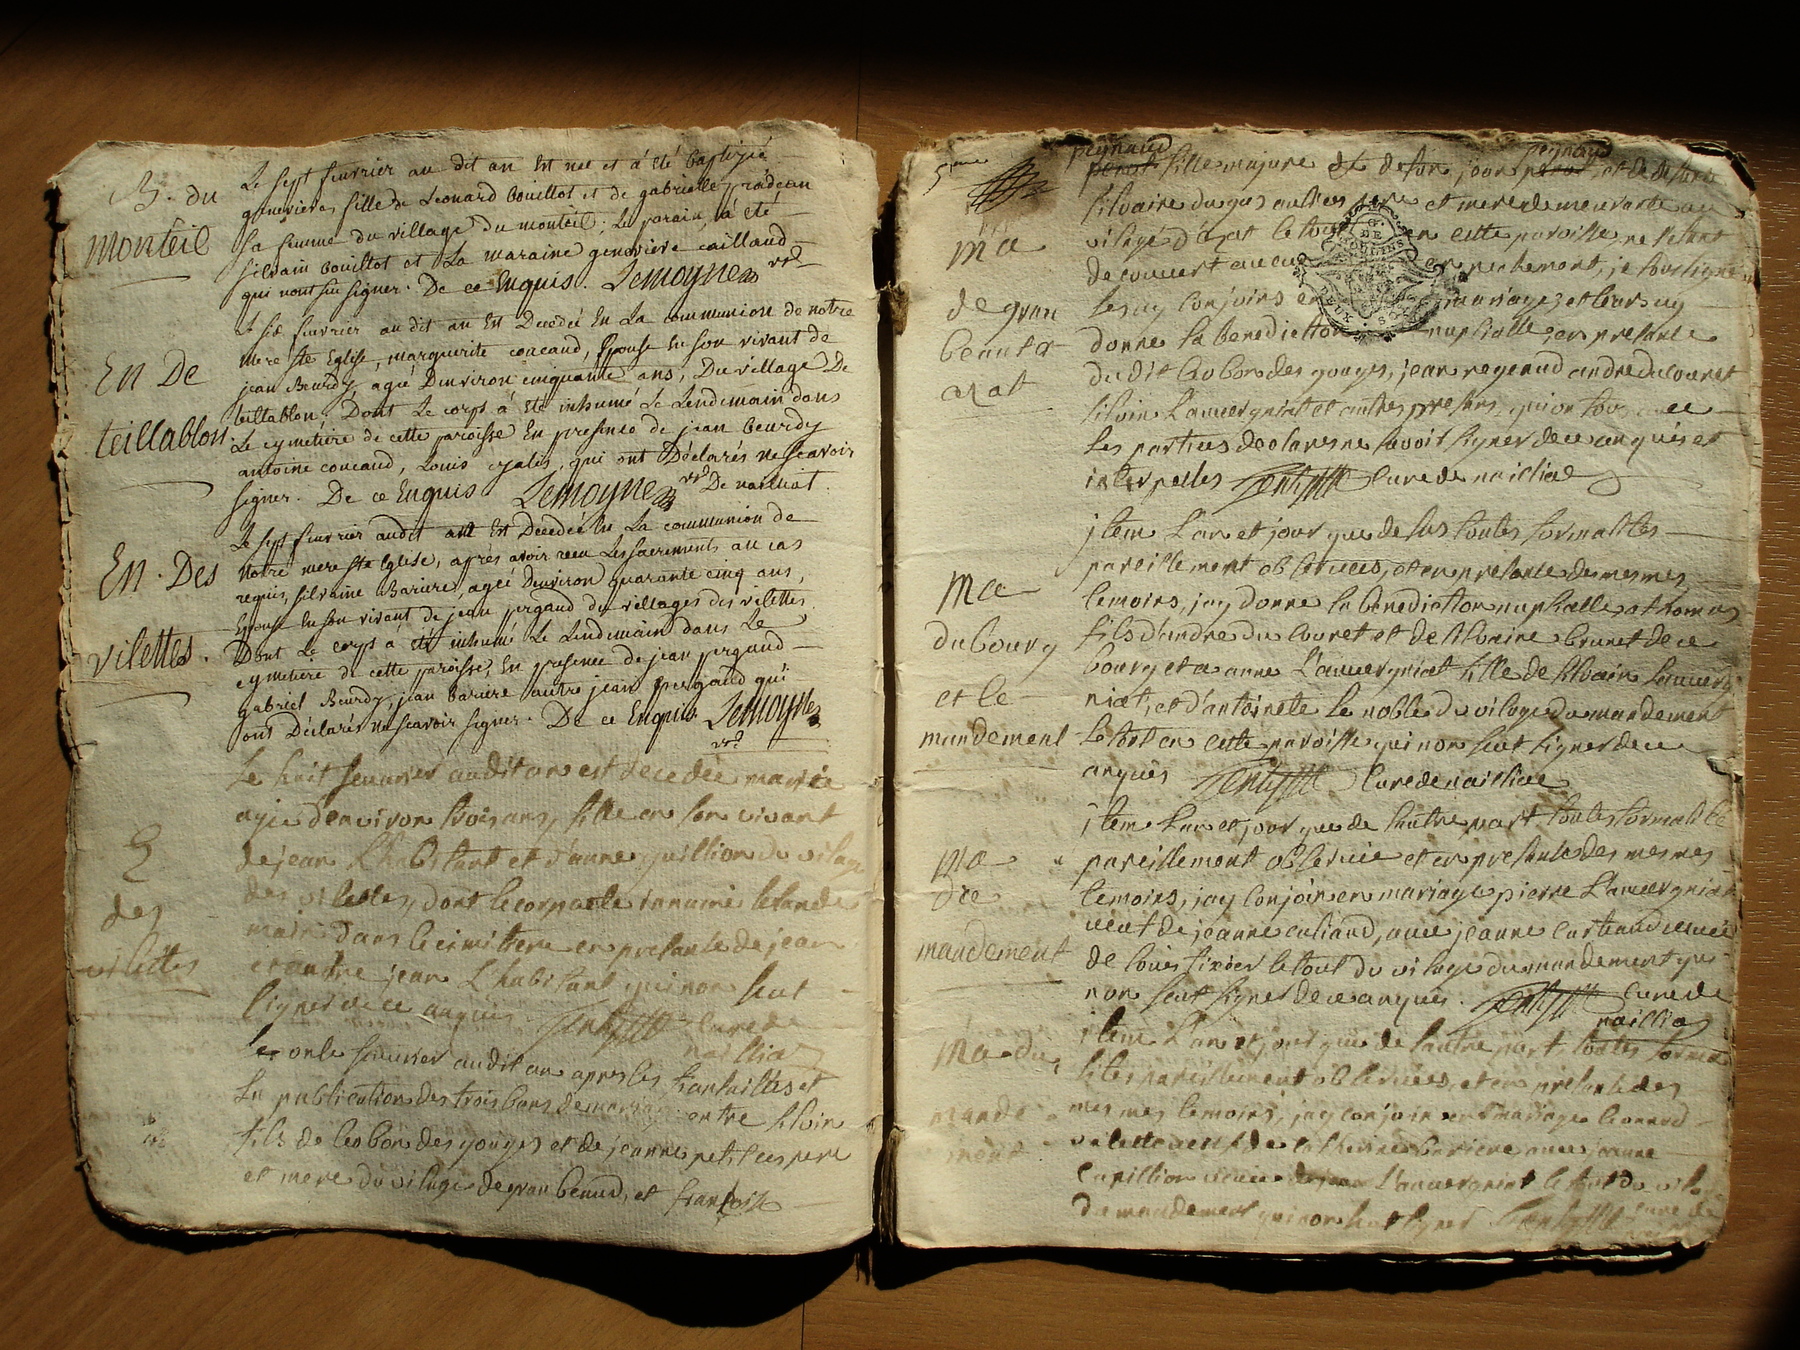 B. du
monteil
Le sept fevrier au dit an Est nee et á été baptizée
genevieve, fille de Leonard bouillot et de gabrielle pradeau
sa femme du village du monteil; Le parain, á été
silvain bouillot et La maraine genevieve caillaud
qui nont sçu signer. De ce Enquis. Lemoyne vre
En De
teillablon.
Le six fevrier au dit an Est Decedée En La communion de notre
mere ste Eglise, marguerite coucaud, Epouse En son vivant de
jean Beurdy, agée Denviron cinquante ans, Du village De
teillablon, Dont Le corps á Eté inhumé Le Lendemain dans
Le cymetiére de cette paroisse En presence de jean beurdy
antoine coucaud, Louis qui ont Déclarés ne scavoir
signer. De ce Enquis Lemoyne vre De naillat.
En. Des
vilettes.
Le sept fevrier audit an Est Decedée En La communion de
notre mere ste Eglise, après avoir reçu Les sacrements au cas
requis, silvaine Bariere, agée denviron quarante cinq ans,
Epouse En son vivant de jean pergaud du villages des vilettes.
Dont Le corps á été inhumé Le Lendemain dans Le
cymetiére de cette paroisse, En presence de jean pergaud
gabriel Beurdy, jean bariere autre jean pergaud qui
ont Déclarés ne scavoir signer. De ce Enquis Lemoyne
vre
E
des
vilettes
Le huit fevrier audit an est decedée marie
agée denviron trois ans, fille en son vivant
de jean L'habitant et d'anne guillion du vilage
des vilettes, dont le corps a ete innumé le lande
main dans le cimittere en presante de jean
et autre jean L'habitant qui non seut
signer de ce anquis curé de
naillia
Le onse fevrier audit an apres les fiansailles et
La publication des trois bans de mariage entre silvin
fils de leobon des gouges et de jeanne petit ces pere
et mere du vilage de gran beaud, et françoise
5me
ma
de gran
beaut et
azat
peynaud peynaud
fille majure de defun jean et de defunte
silvaine dugas au lieu pere et mere demeurante au
vilage d'azat le tout en cette paroisse ne setant
decouvert aucun enpechement, je soussigne
les ay conjoins en mariage et leurs ay
donne la benediction nuptialle, en presante
du dit leobon des gouges, jean regeaud andre du couret
silvin L'auvergniat et autres presans, qui on tous avec
les parties declares ne savoir signer de ce anquis et
interpelles curé de naillia
ma
du bourg
et le
mandement
jtem L'an et jour que desus toutes formalites
pareillement observees, et en presante des mesmes
temoins, jay donne la benediction nuptialle a thomas
fils d'andre du couret et de silvaine brunet de ce
bourg et a anne L'auvergniat fille de silvain Lauverg
niat, et d'antoinete le noble du vilage du mandement
le tout en cette paroisse qui non seut signer de ce
anquis curé de naillia
ma
die
mandement
jtem L'an et jour que de l'autre part toutes formalite
pareillement observée et en presante des mesmes
temoins, jay conjoin en mariage pierre L'auvergniat
veuf de jeanne caliaud, avec jeanne curteaud veuve
de louis fixier le tout du vilage du mandement qui
non seut signer de ce anquis. curé de
naillia
ma du
mande
ment
jtem L'an et jour que de l'autre part, toutes forma
lites pareillement observées, et en presante des
mesmes temoins, jay conjoin en mariage leonard
vilette veuf de catherine bariere avec jeanne
veuve L'auvergniat le tout du vilage
du mandement qui non seut signer curé de